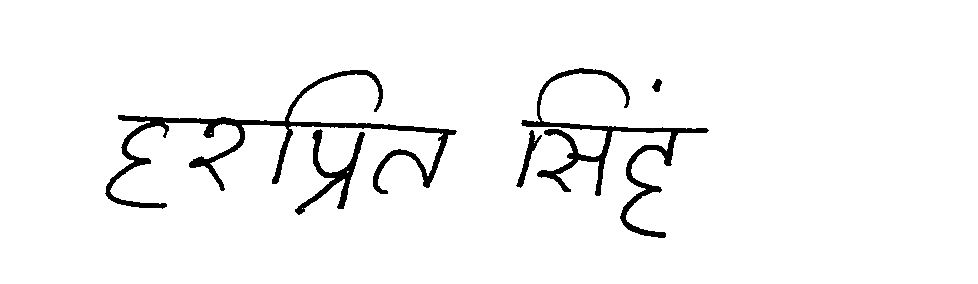 हरप्रित सिहं